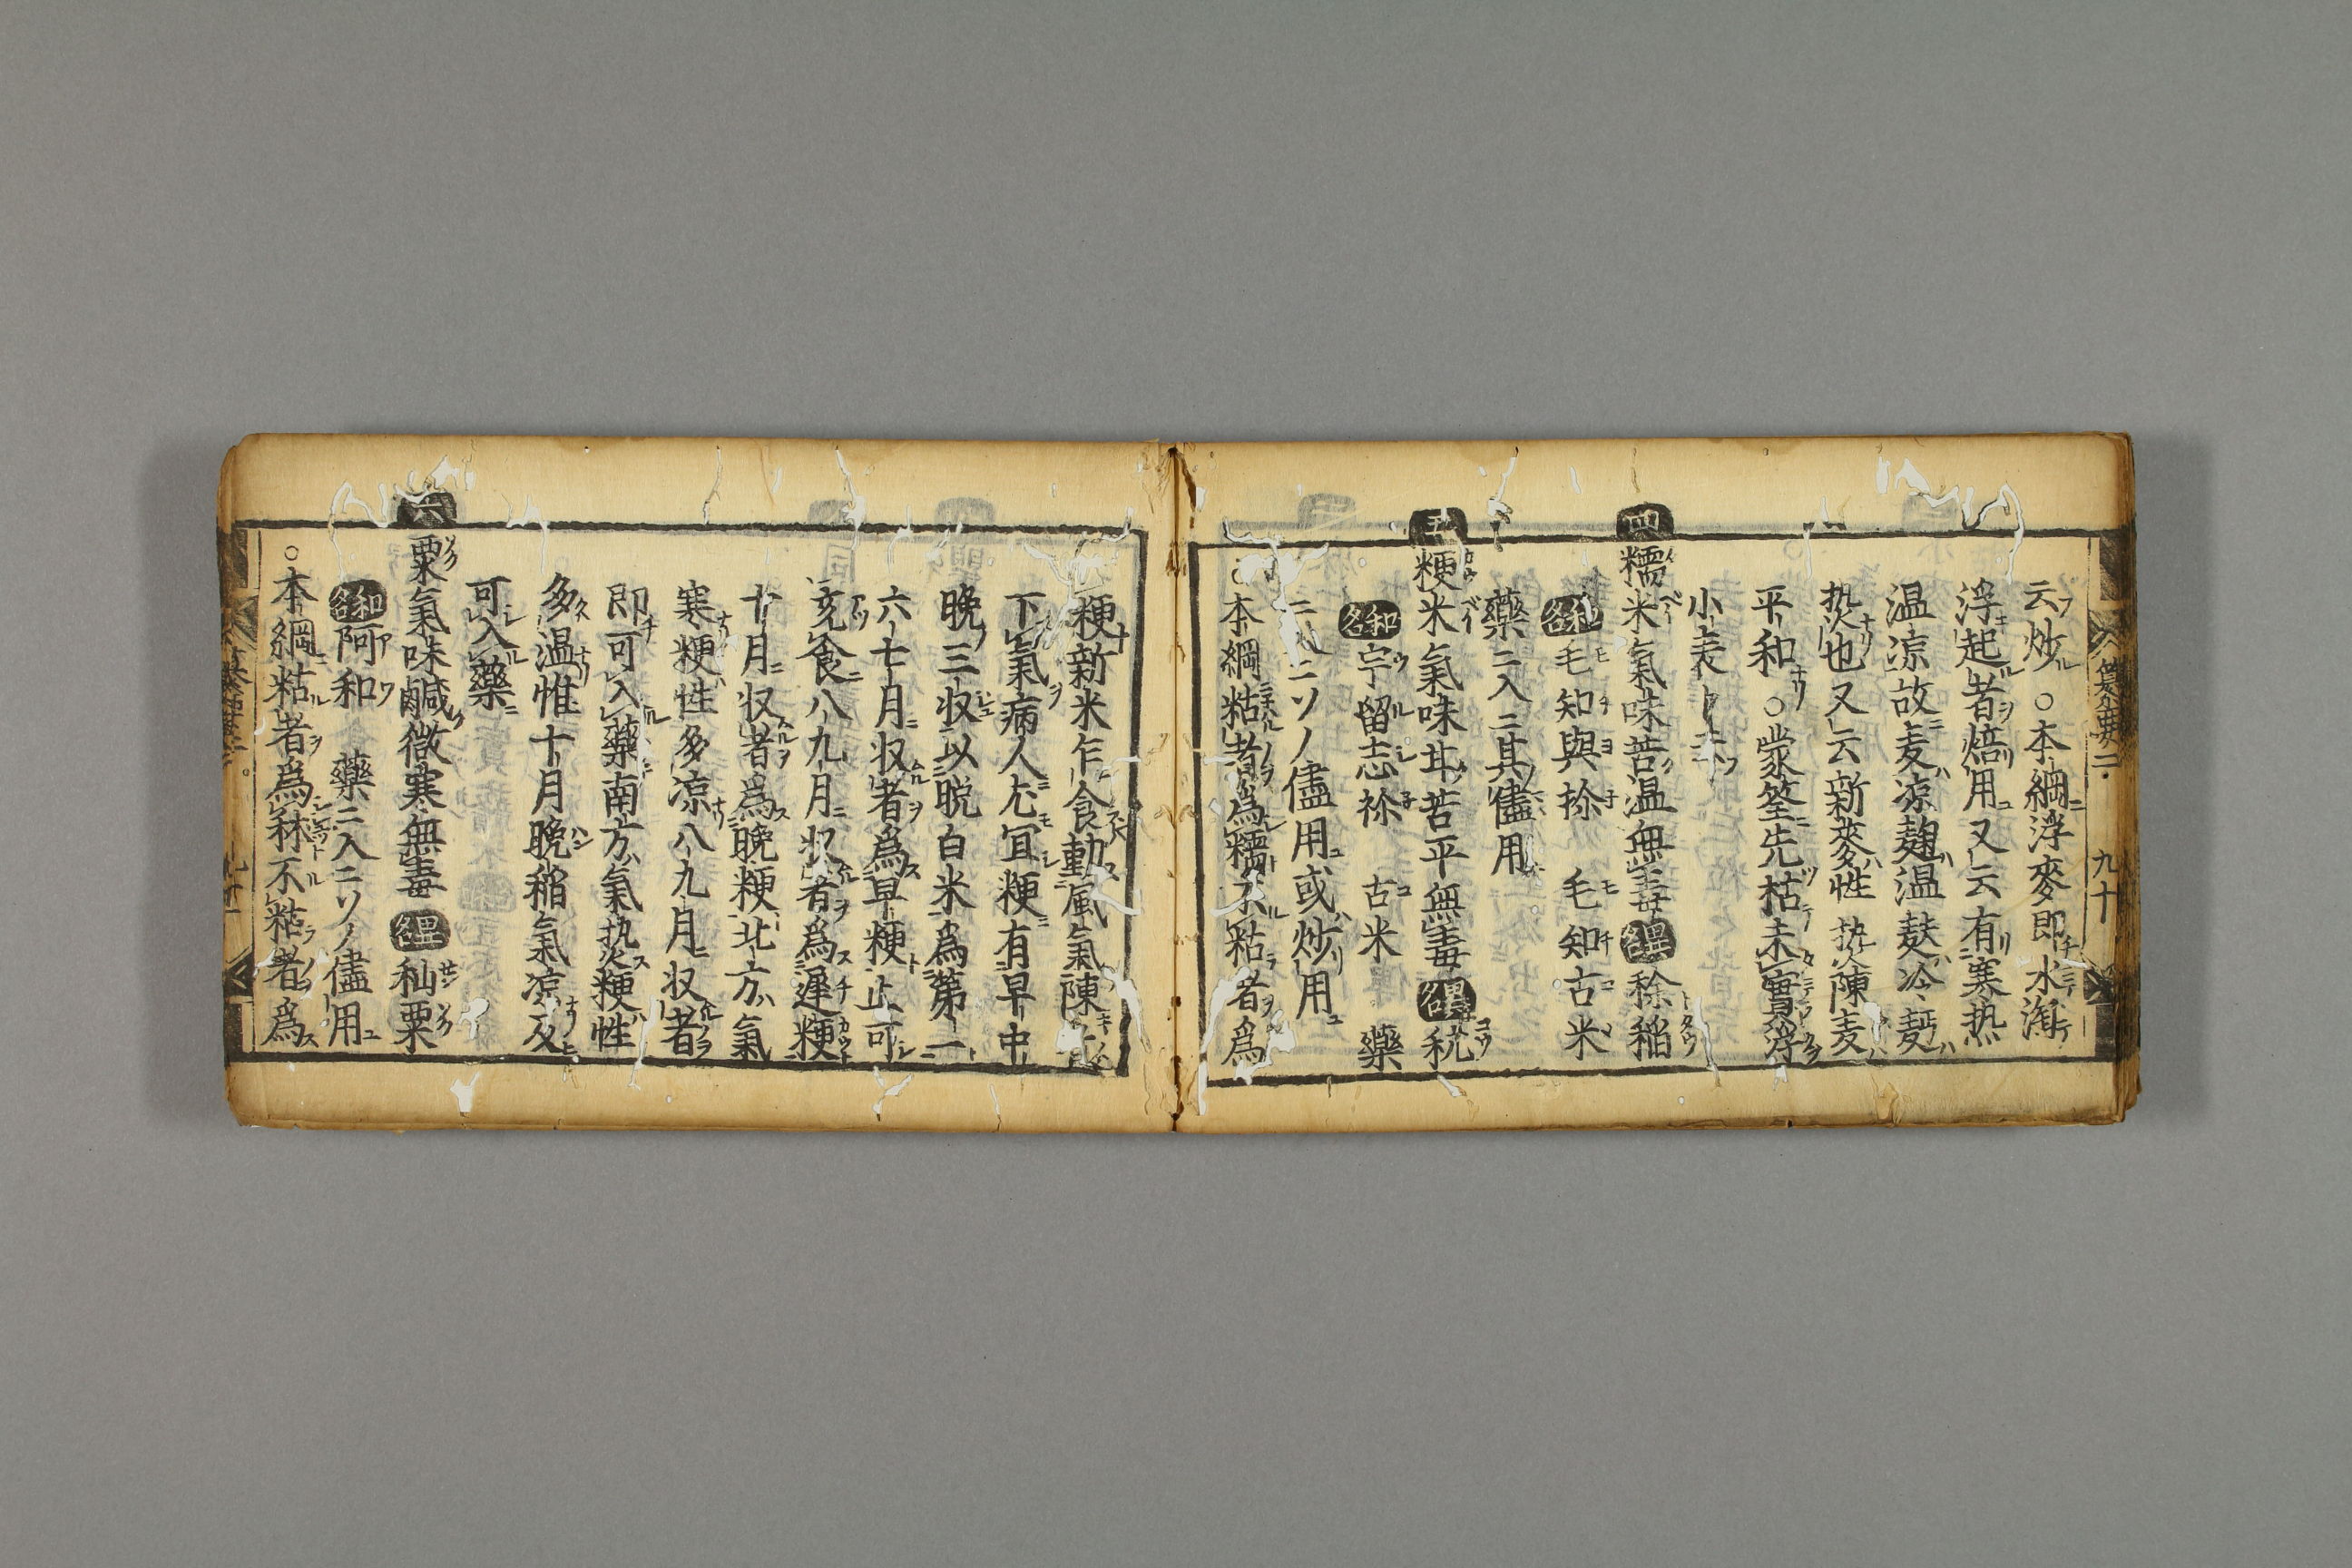 纂要二 九十
云炒 ○本綱浮麥即水淘
浮起者焙用又云有寒热
温凉故麦凉麹温麩冷麪
热也又云新麥性热陳麦
平和 ○蒙筌先枯未實浮
小麦ト云
四 糯米氣味苦温無毒 異名 稌稲
和名 毛知與祢 毛知古米
藥ニ入ニ其儘用
五 粳米氣味甘苦平無毒 異名 秔
和名 宇留志祢 古米 藥
ニ入ニソノ儘用或炒用
○本綱粘者為糯不粘者為
粳新米乍食動風氣陳
下氣病人尤冝粳有早中
晩三収以晩白米為第一
六七月収者為早粳止可
充食八九月収者為遲粳
十月収者為晩粳北方氣
寒粳性多凉八九月収者
即可入藥南方氣热粳性
多温惟十月晩稲氣凉及
可入藥
六 粟氣味鹹微寒無毒 異名 秈粟
和名 阿和 藥ニ入ニソノ儘用
○本綱粘者為秫不粘者為